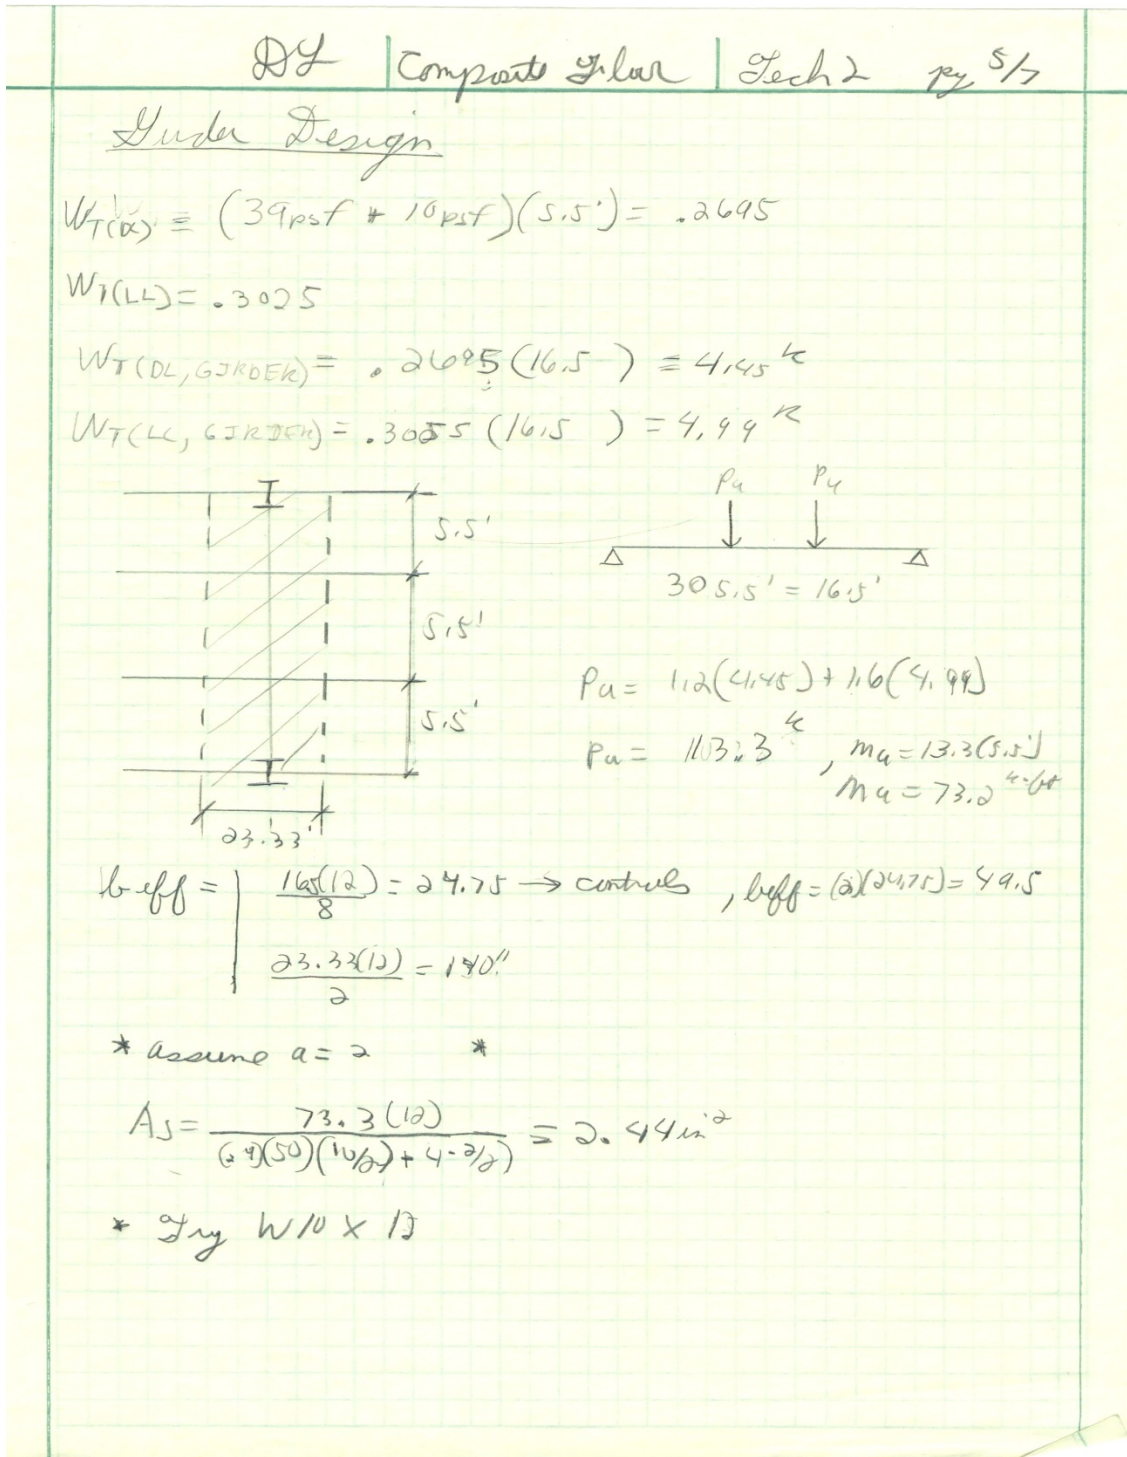 DL | Composite Floor | Tech 2 pg 5/7
Girder Design
WT(DL) = (39psf + 10psf)(5.5') = .2695
WT(LL) = .3025
WT(DL, GIRDER) = .2695(16.5 ) = 4.45 k
WT(LL, GIRDER) = .3055 (16.5 ) = 4.99 k
Pu Pu
5.5'
3@5.5' = 16.5'
5.5'
Pu = 1.2(4.45) + 1.6(4.99)
5.5'
Pu = 13.3 k , Mu = 13.3(5.5')
Mu = 73.2 k-ft
23.33'
beff = | 16.5(12)/8 = 24.75 → controls , beff = (2)(24.75) = 49.5
23.33(12)/2 = 140"
* assume a = 2 *
As = 73.3(12)/(.9)(50)(10/2) + 4-2/2) = 2.44 in2
* Try W10 X 12